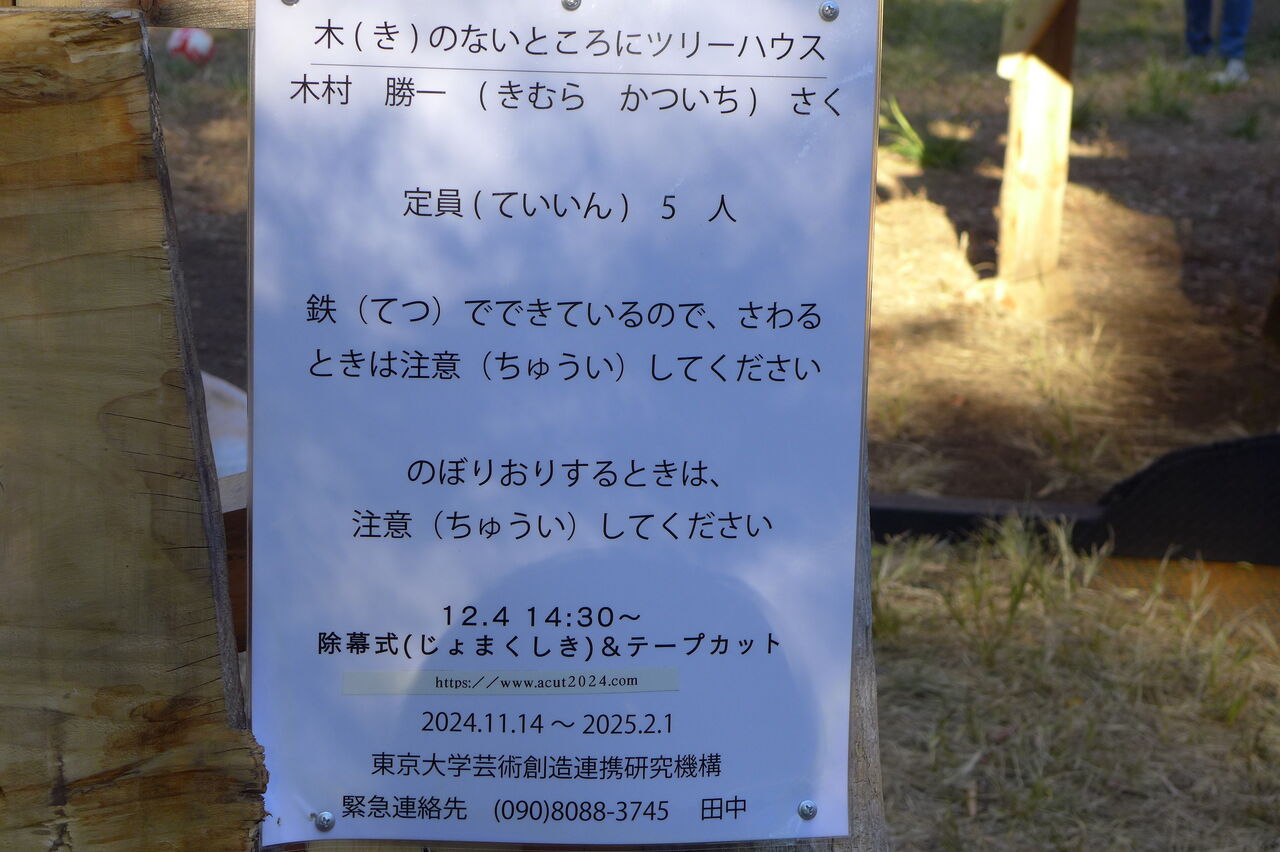 木(き)のないところにツリーハウス
木村　勝一　(きむら　かついち)　さく
定員(ていいん)　5　人
鉄（てつ）でできているので、さわる
ときは注意（ちゅうい）してください
のぼりおりするときは、
注意（ちゅうい）してください
12.4 14:30～
除幕式(じょまくしき)＆テープカット
https://www.acut2024.com
2024.11.14 ～ 2025.2.1
東京大学芸術創造連携研究機構
緊急連絡先　(090)8088-3745　田中